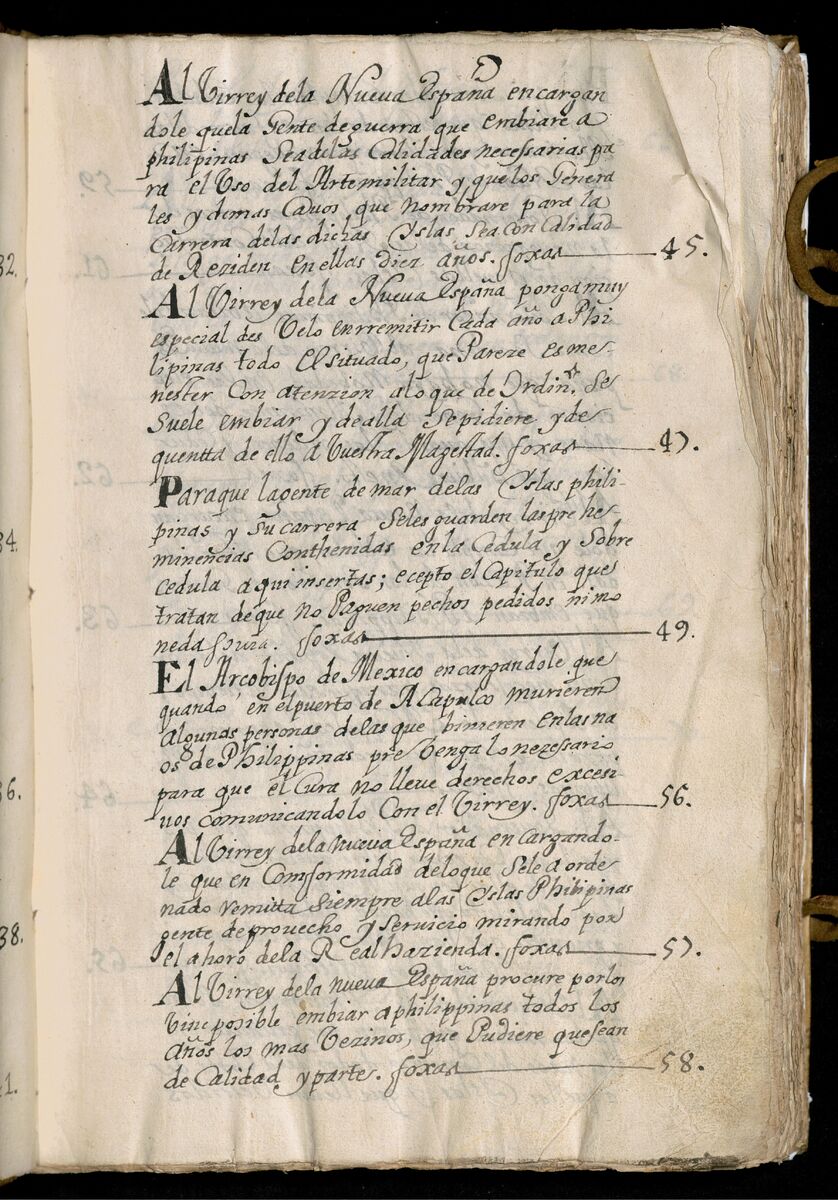 Al Virrey dela Nueva España encargan
dole quela Gente deguerra que embiare a
philipinas Seadelas Calidades necessarias pa
ra el Uso del Artemilitar y quelos Genera
les y demas Cavos que nombrare para la
Carrera delas dichas Yslas Sea con Calidad
de Reziden en ellas Diez años. foxas 45.
Al Virrey dela Nueva España ponga muy
especial des Velo enrremitir Cada año a Phi
lipinas todo El situado, que Pareze es me-
nester Con atenzion alo que de Ordin.º Se
Suele embiar y de alla Sepidiere yde
quentta de ello a Vuestra Magestad. foxas 47.
Paraque lagente de mar delas Yslas phili-
pinas y Su carrera Seles guarden laspre he-
minencias Conthenidas en la Cedula y Sobre
cedula aqui insertas; ecepto el Capitulo que
tratan deque no Paguen pechos pedidos ni mo
neda foxas 49.
El Arcobispo de Mexico encargandole que
quando en elpuerto de Acapulco murieren
algunas personas delas que binieren enlas na
os de Philippinas prevenga lo nezessario
para que el Cura no lleve derechos excesi
vos comunicandolo Con el Virrey. foxas 56.
Al Virrey dela nueva España en cargando-
le que en Comformidad deloque Sele a orde
nado remitta Siempre alas Yslas Philipinas
gente deprovecho y Servicio mirando por
el ahoro dela Real hazienda. foxas 57.
Al Virrey dela nueva España procure porlos
embiar aphilippinas todos los
años los mas Vezinos, que Pudiere quesean
de Calidad y parte. foxas 58.
32.
34.
36.
38.
41.